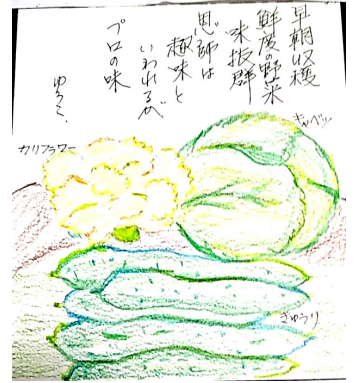 早朝収穫
鮮度の野菜
味抜群
恩師は
趣味と
いわれるが
プロの味
ゆうこ.
キャベツ
カリフラワー
きゅうり